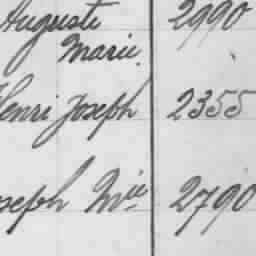 Auguste 2990
Marie
Henri Joseph 2355
Joseph Mie 2790